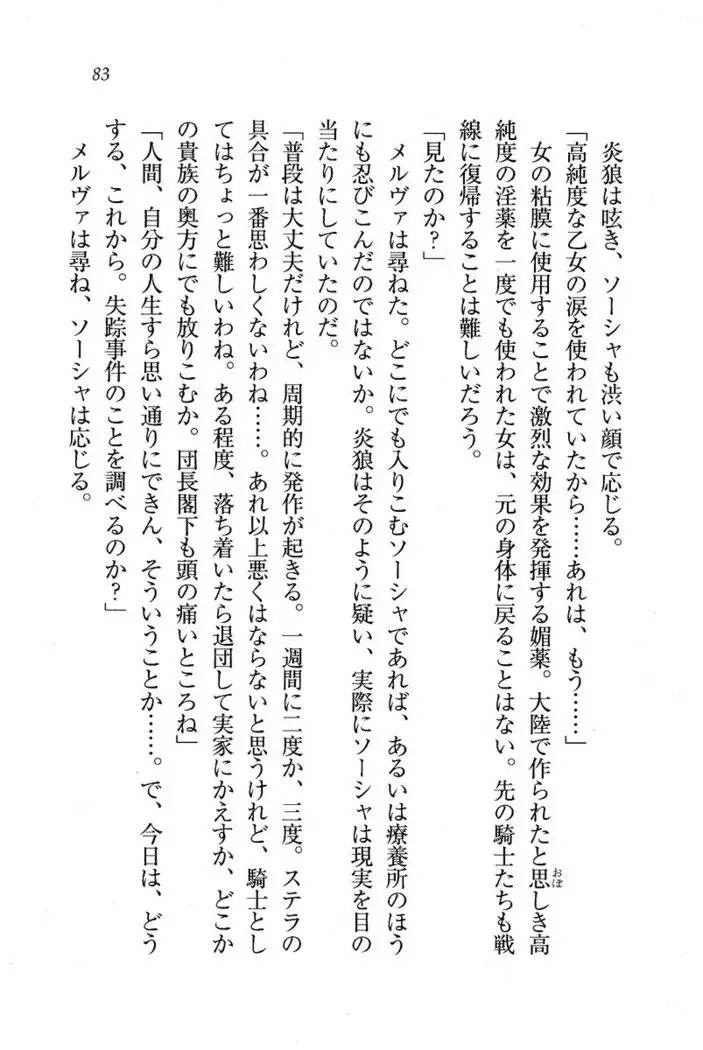 83
炎狼は呟き、ソーシャも渋い顔で応じる。
「高純度な乙女の涙を使われていたから……あれは、もう……」
女の粘膜に使用することで激烈な効果を発揮する媚薬。大陸で作られたと思しき高
おぼ
純度の淫薬を一度でも使われた女は、元の身体に戻ることはない。先の騎士たちも戦
線に復帰することは難しいだろう。
「見たのか？」
メルヴァは尋ねた。どこにでも入りこむソーシャであれば、あるいは療養所のほう
にも忍びこんだのではないか。炎狼はそのように疑い、実際にソーシャは現実を目の
当たりにしていたのだ。
「普段は大丈夫だけれど、周期的に発作が起きる。一週間に二度か、三度。ステラの
具合が一番思わしくないわね……。あれ以上悪くはならないと思うけれど、騎士とし
てはちょっと難しいわね。ある程度、落ち着いたら退団して実家にかえすか、どこか
の貴族の奥方にでも放りこむか。団長閣下も頭の痛いところね」
「人間、自分の人生すら思い通りにできん、そういうことか……。で、今日は、どう
する、これから。失踪事件のことを調べるのか？」
メルヴァは尋ね、ソーシャは応じる。